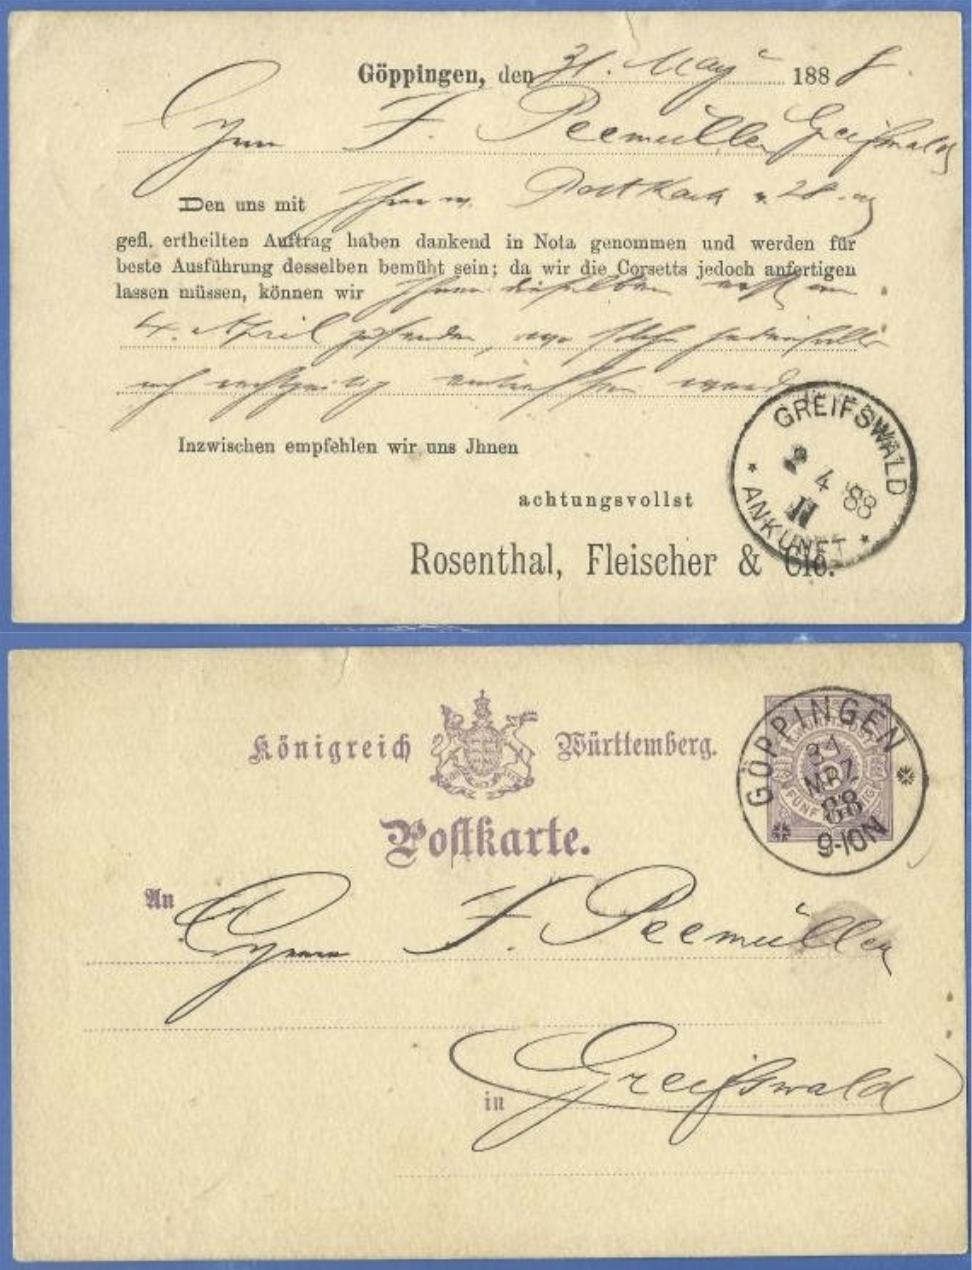 Göppingen, den 31. März 1888.
Herrn F. Peemüller Greifswald
Den uns mit Ihrer w. Postkarte v. 28. 
gefl. ertheilten Auftrag haben dankend in Nota genommen und werden für
beste Ausführung desselben bemüht sein; da wir die Corsetts jedoch anfertigen
lassen müssen, können wir Ihnen dieselben erst am
4. April zusenden, wo solche jedenfalls
noch rechtzeitig eintreffen werden
Inzwischen empfehlen wir uns Jhnen
achtungsvollst
Rosenthal, Fleischer & Cie.
GREIFSWALD
2 4 88
ANKUNFT
Königreich Württemberg.
Postkarte.
GÖPPINGEN
31 MRZ 88
9-10N
FÜNF
An Herrn F. Peemüller
in Greifswald